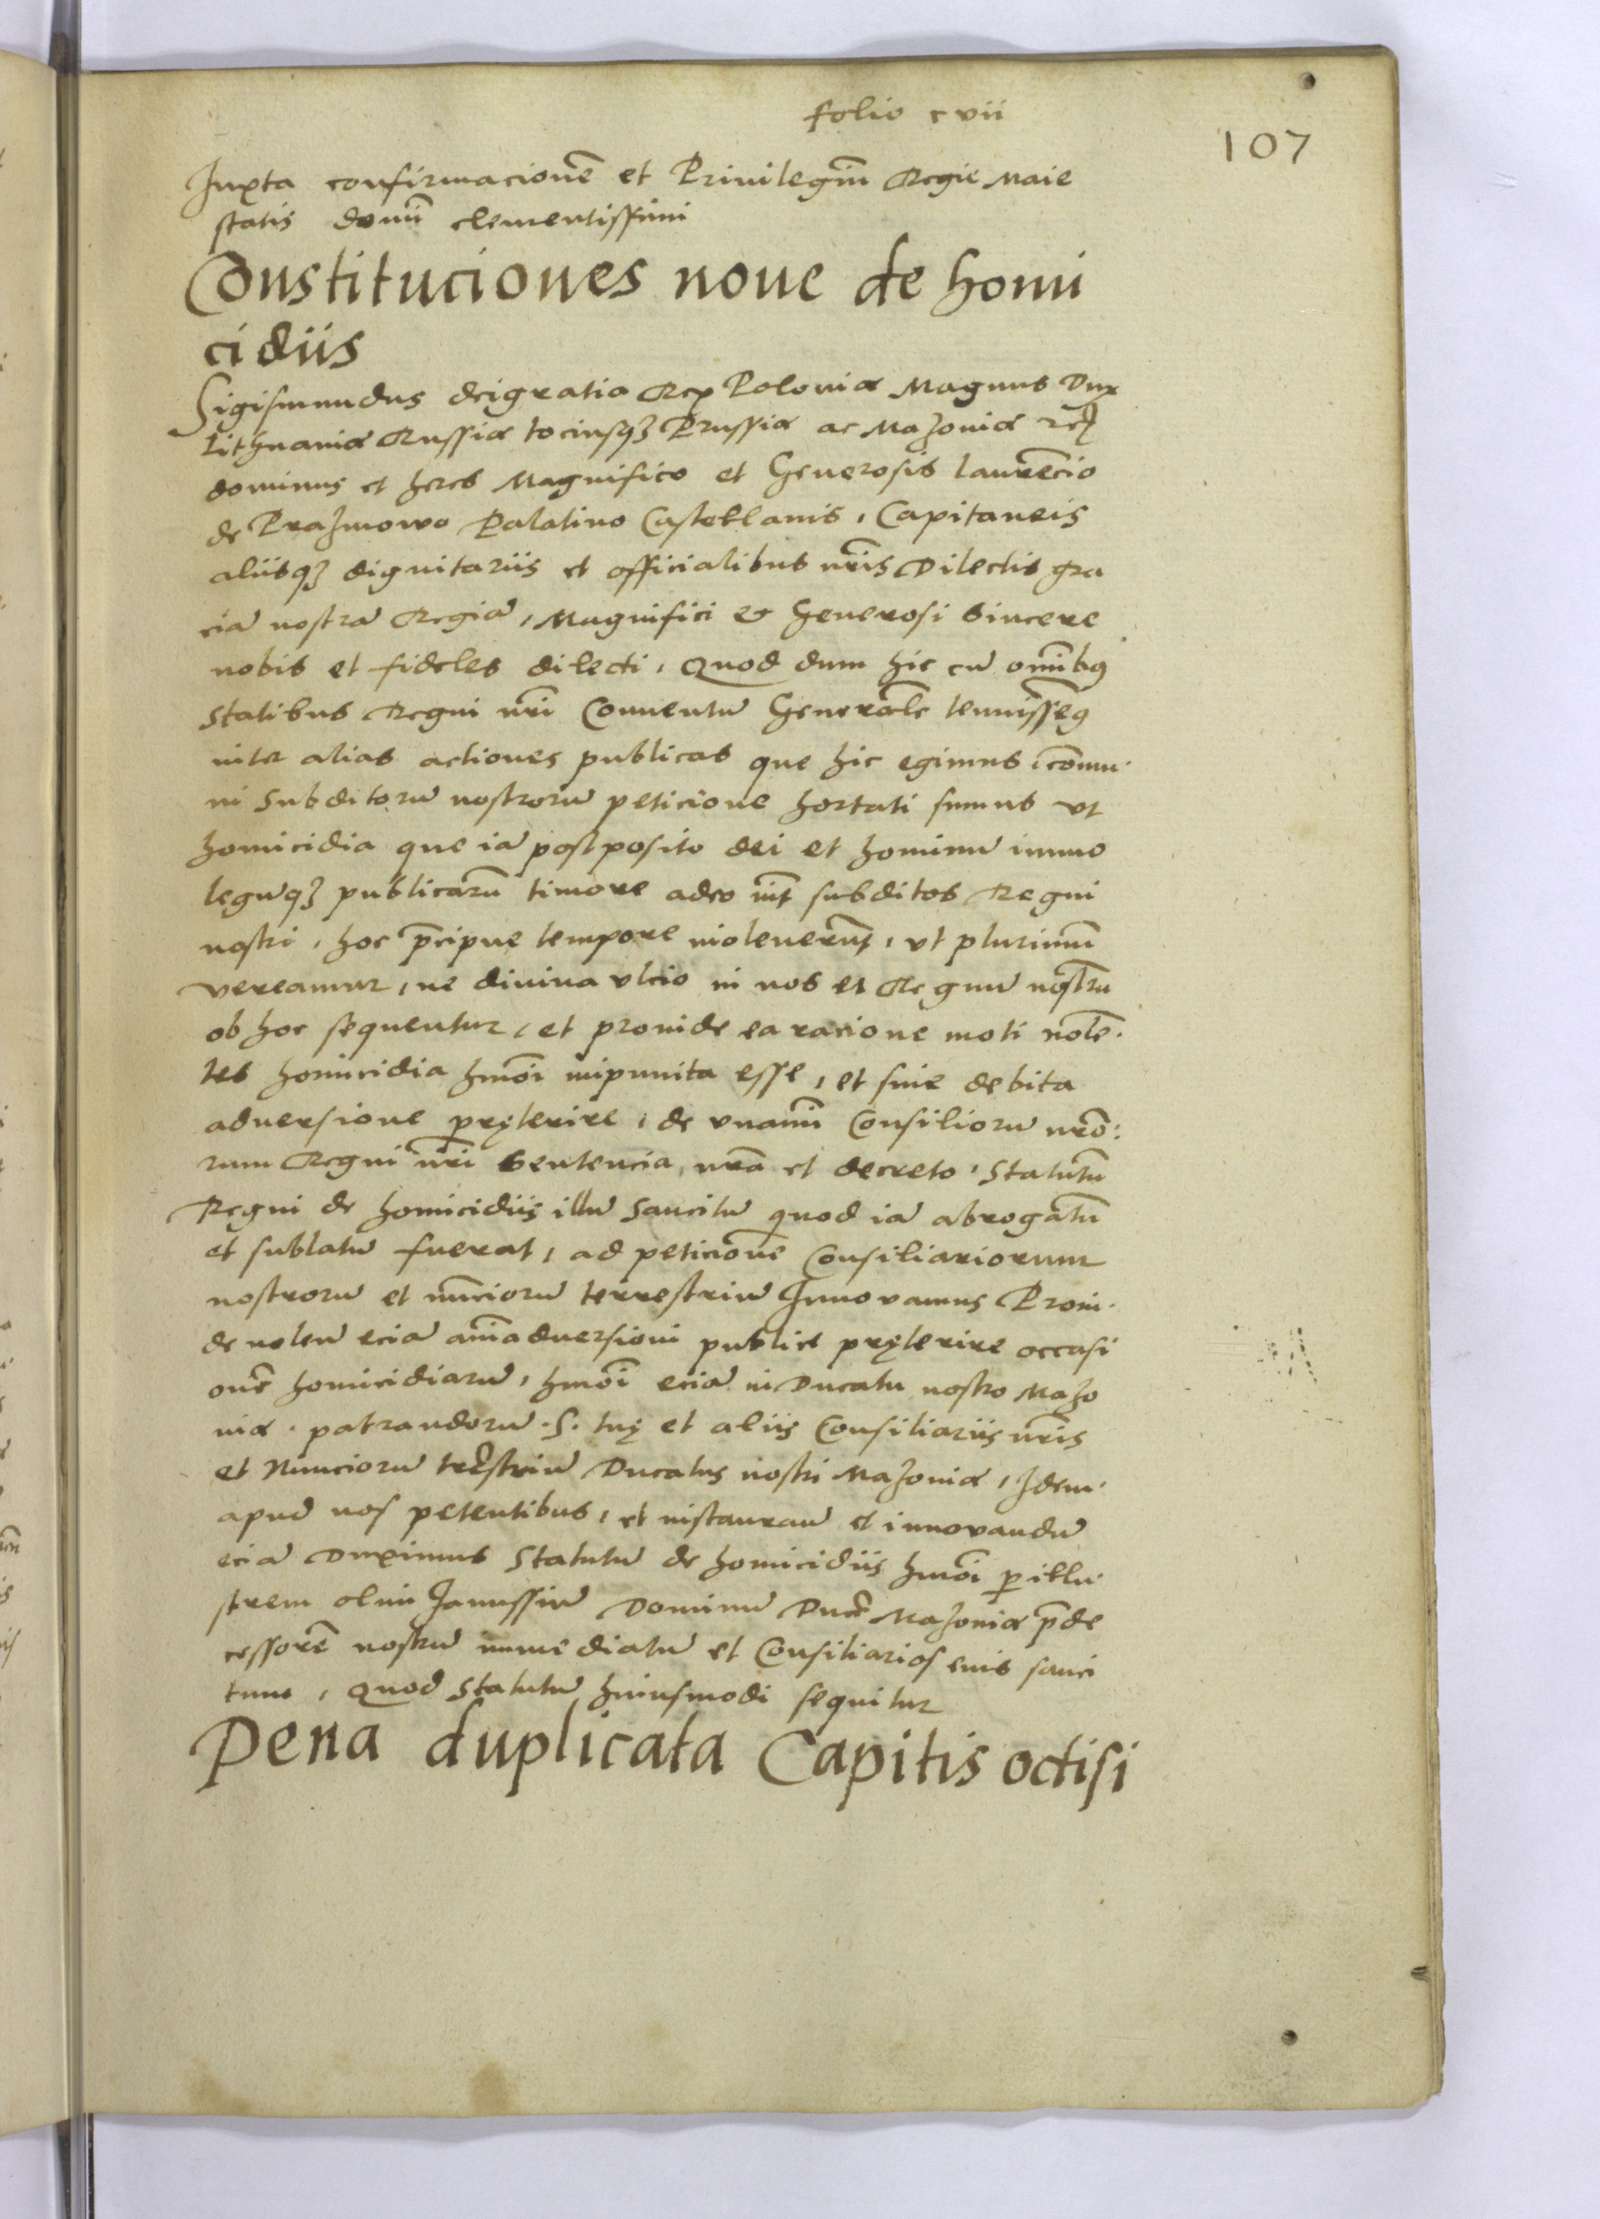 folio cvii
107
Juxta confirmacionē et Priuilegiū Regie Maie
statis domī clementissimi
Constituciones noue de homi
cidiis
Sigismundus deigratia Rex Poloniæ Magnus Dux
Lithuaniæ Russiæ tociusqȝ Prussiæ ac Mazouiæ
dominus et heres Magnifico et Generosis laurēcio
de Prazmowo Palatino Castellanis, Capitaneis
aliisqȝ dignitariis et officialibus nr̄is Dilectis gra
ciā nostrā Regiā, Magnifici et Generosi Sincere
nobis et fideles dilecti, Quod dum hic cū omībꝯ
Statibus Regni nr̄i Conuentū Generāle tenuissēꝯ
inter alias actiones publicas que hic egimus, cōmu
ni Subditorū nostrorū peticione hortati sumus vt
homicidia que iā postposito dei et hominū immo
legūqȝ publicarū timore adeo int̄ subditos Regni
nostri, hoc p̄cipue tempore inoleuerūt, vt plurimū
vereamur, ne diuina vlcio in nos et Regnū nostrū
ob hoc sequentur, et prouide ea racione moti nolē
tes homicidia hmōi impunita esse, et sine debita
aduersione pręterire, de vnanimi Consiliorū nrō
rum Regni nr̄i Sentencia, nrā et decreto, Statutū
Regni de homicidiis illū Sancitū quod iā abrogatū
et sublatū fuerat, ad peticionē Consiliariorum
nostrorū et nūciorū terrestriū Innouamus Proin
de nolen eciā aīaduersioni publice pręterire occasi
onē homicidiarū, hmōi eciā in Ducatu nostro Mazo
uiæ patrandorū S. tuę et aliis Consiliariis nr̄is
et Nunciorū terrestriū Ducatus nostri Mazouiæ, Idem
apud nos petentibus, et instauran et innouandū
eciā Duximus Statutū de homicidiis hmōi p illu
strem olim Janussiū Dominū Ducē Mazouiæ p̄de
cessorē nostrū immediatū et Consiliarios eius sanci
tum, Quod Statutū huiusmodi sequitur
Pena duplicata Capitis occisi